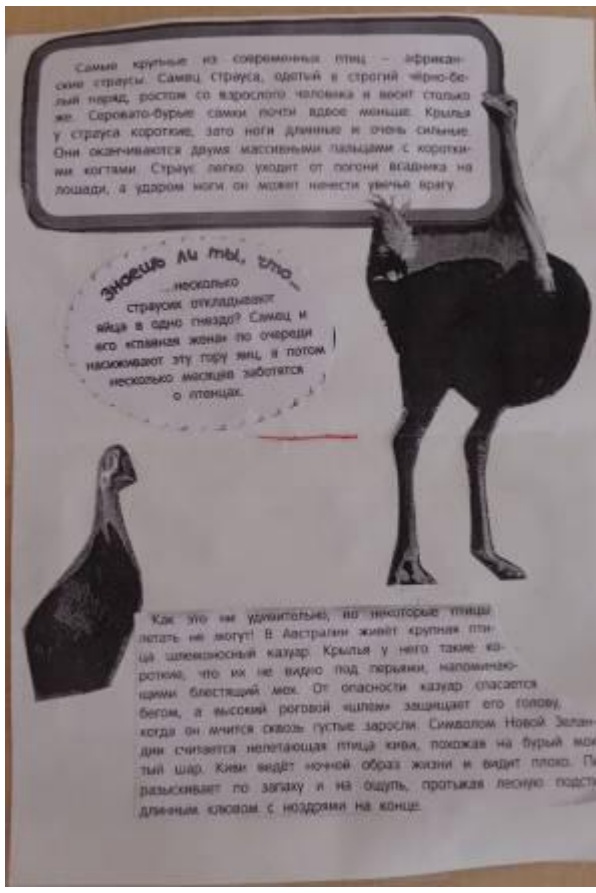 Самые крупные из современных птиц – африкан-
ские страусы. Самец страуса, одетый в строгий чёрно-бе-
лый наряд, ростом со взрослого человека и весит столько
же. Серовато-бурые самки почти вдвое меньше. Крылья
у страуса короткие, зато ноги длинные и очень сильные.
Они оканчиваются двумя массивными пальцами с коротки-
ми когтями. Страус легко уходит от погони всадника на
лошади, а ударом ноги он может нанести увечье врагу.
Знаешь ли ты, что...
...несколько
страусих откладывают
яйца в одно гнездо? Самец и
его «главная жена» по очереди
насиживают эту гору яиц, а потом
несколько месяцев заботятся
о птенцах.
Как это ни удивительно, но некоторые птицы
летать не могут! В Австралии живёт крупная пти-
ца шлемоносный казуар. Крылья у него такие ко-
роткие, что их не видно под перьями, напоминаю-
щими блестящий мех. От опасности казуар спасается
бегом, а высокий роговой «шлем» защищает его голову,
когда он мчится сквозь густые заросли. Символом Новой Зелан-
дии считается нелетающая птица киви, похожая на бурый мох
тый шар. Киви ведёт ночной образ жизни и видит плохо.
разыскивает по запаху и на ощупь, протыкая лесную подсти
длинным клювом с ноздрями на конце.